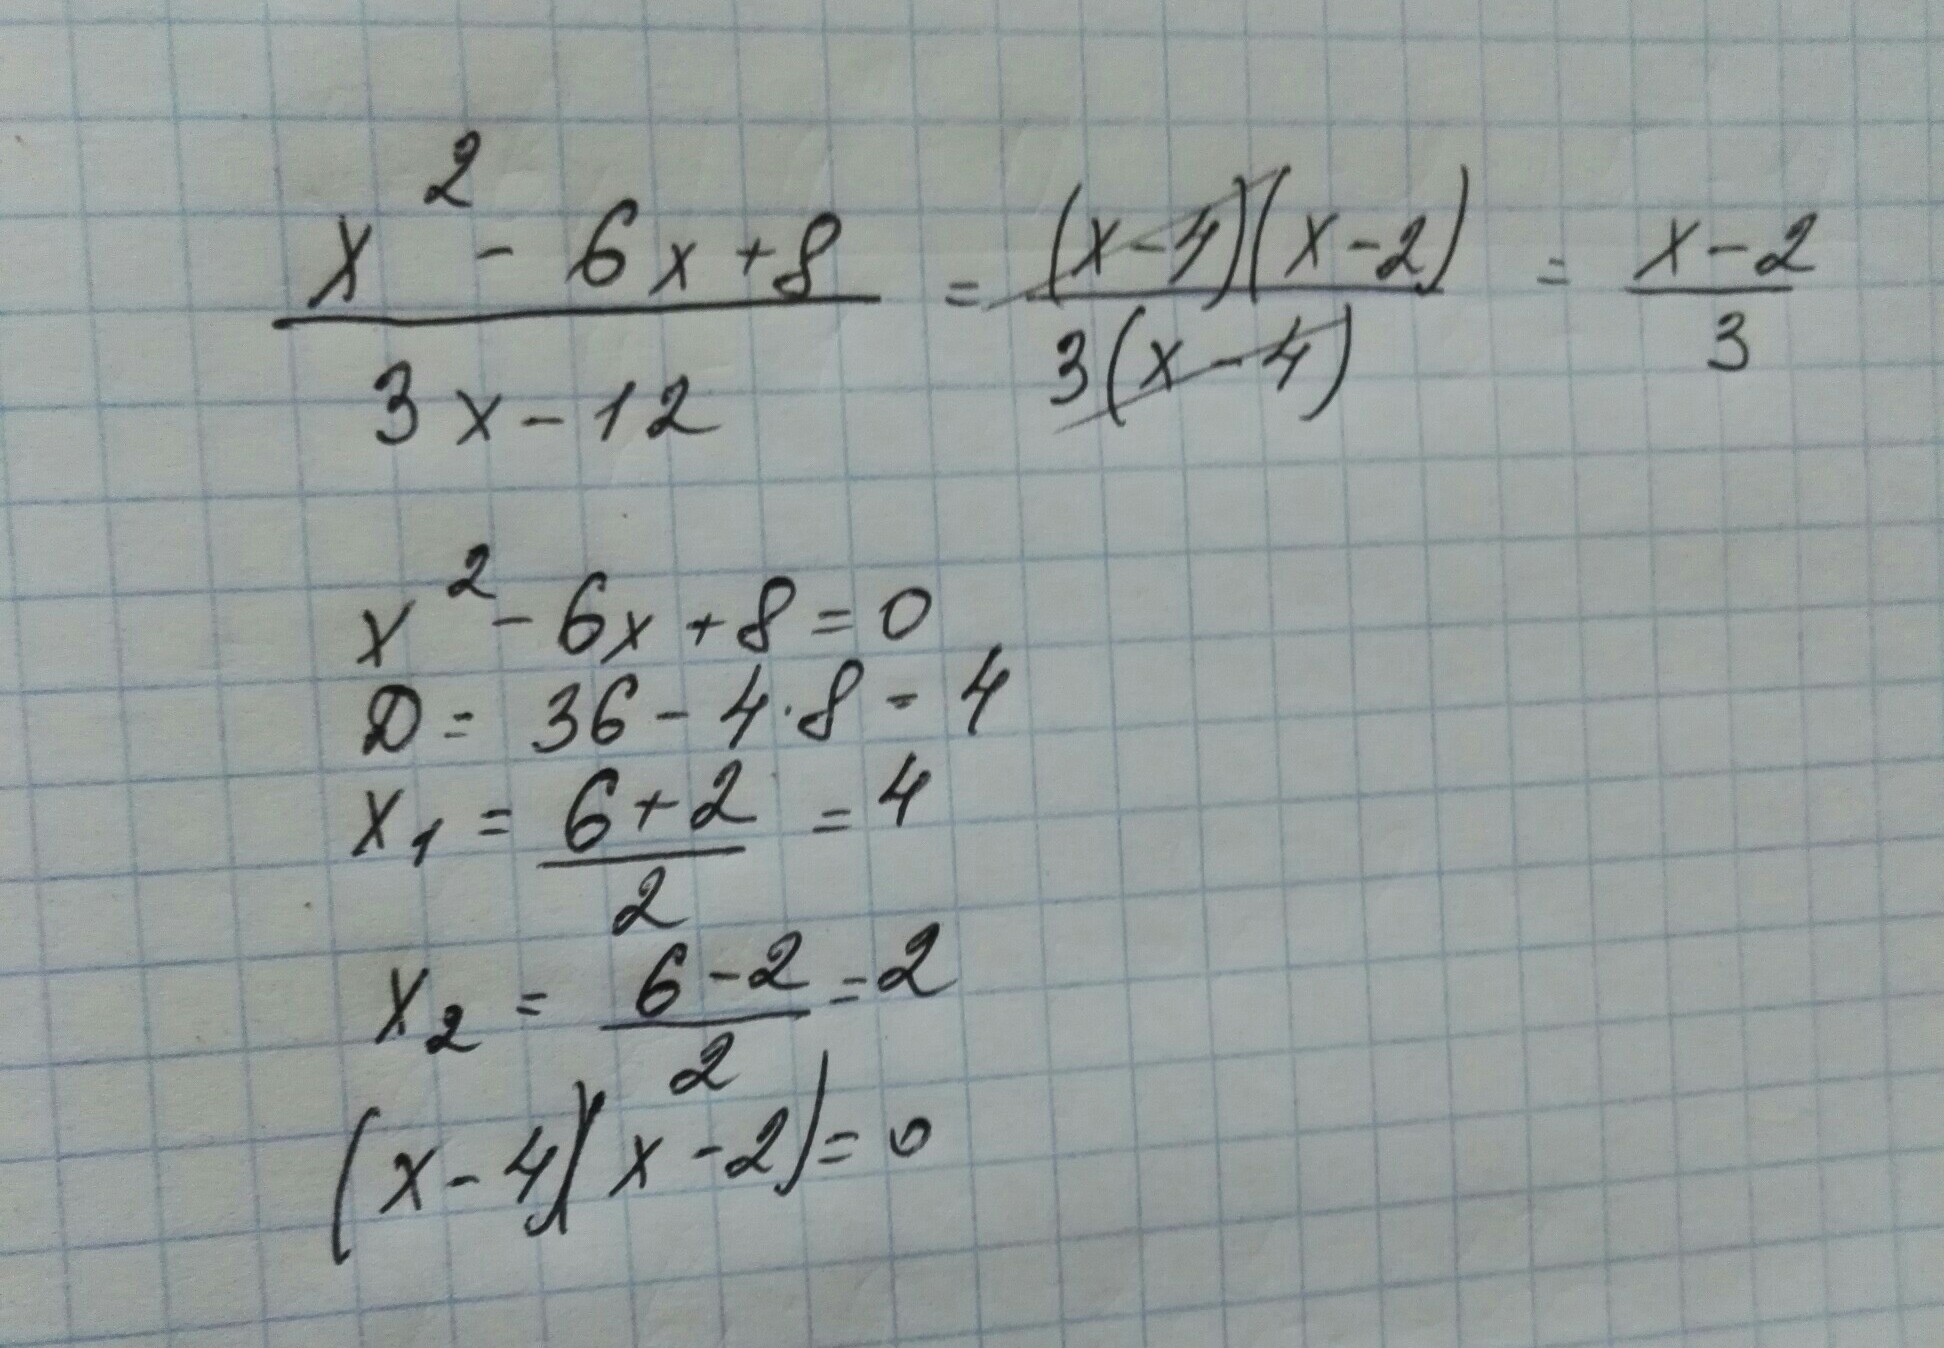 x² - 6x + 8 / 3x - 12 = (x - 4)(x - 2) / 3(x - 4) = x - 2 / 3
x² - 6x + 8 = 0
D = 36 - 4·8 - 4
x₁ = 6 + 2 / 2 = 4
x₂ = 6 - 2 / 2 = 2
(x - 4)(x - 2) = 0